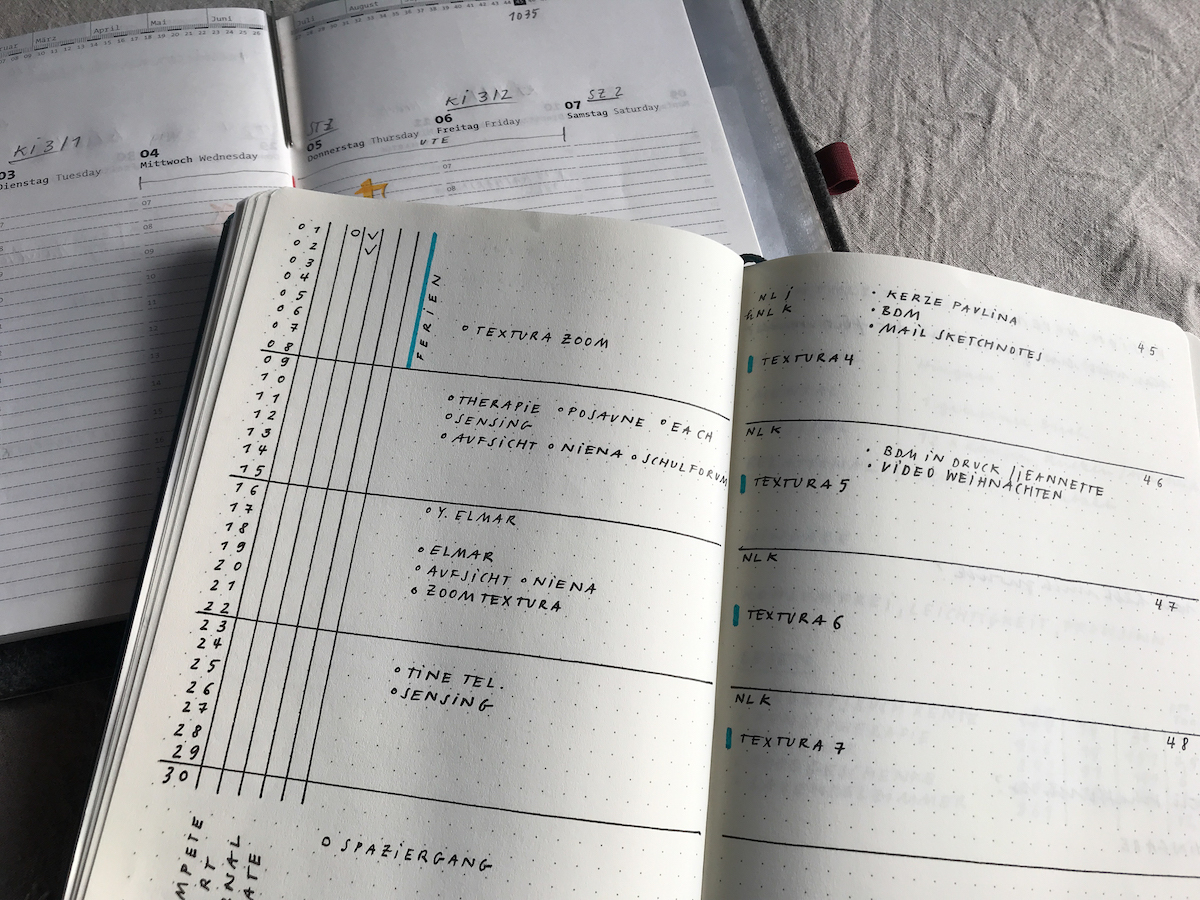 März
April
Mai
Juni
Juli
August
1035
Ki 3/1
03
Dienstag Tuesday
04
Mittwoch Wednesday
07
08
05
Donnerstag Thursday
UTE
Ki 3/2
06
Freitag Friday
07
08
SZ 2
07
Samstag Saturday
01
02
03
04
05
06
07
08
09
10
11
12
13
14
15
16
17
18
19
20
21
22
23
24
25
26
27
28
29
30
FERIEN
TEXTURA ZOOM
THERAPIE POSAUNE EACH
SENSING
AUFSICHT NIENA SCHULFORUM
Y. ELMAR
ELMAR
AUFSICHT NIENA
ZOOM TEXTURA
TINE TEL.
SENSING
SPAZIERGANG
NL j
NL K
• KERZE PAULINA
• BDM
• MAIL SKETCHNOTES
45
TEXTURA 4
NLK
• BDM IN DRUCK JEANNETTE
• VIDEO WEIHNACHTEN
46
TEXTURA 5
NLK
47
TEXTURA 6
NLK
48
TEXTURA 7